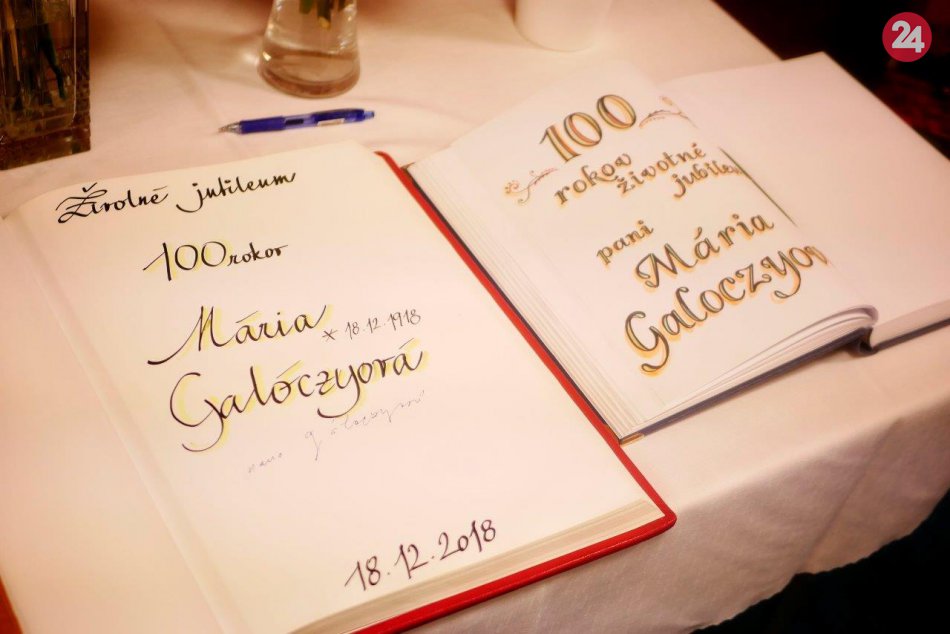 24
Životné jubileum
100 rokov
Mária * 18.12.1918
Galóczyová
18.12.2018
100
rokov
životné
pani
Mária